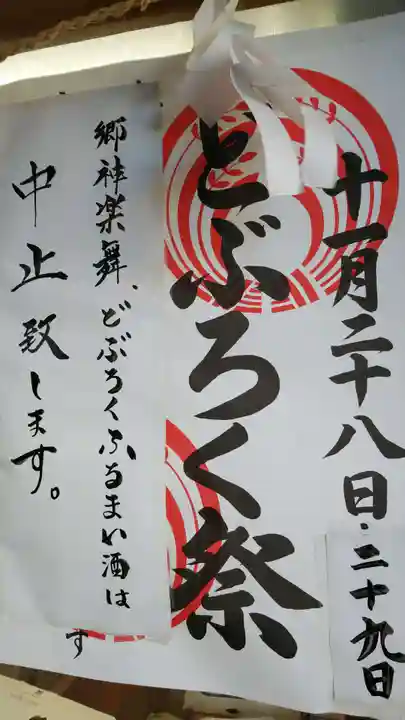 十一月二十八日・二十九日
どぶろく祭
郷神楽舞、どぶろくふるまい酒は
中止致します。
す